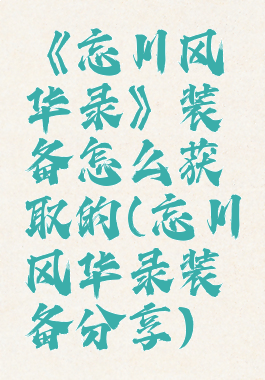 《忘川风
华录》装
备怎么获
取的(忘川
风华录装
备分享)